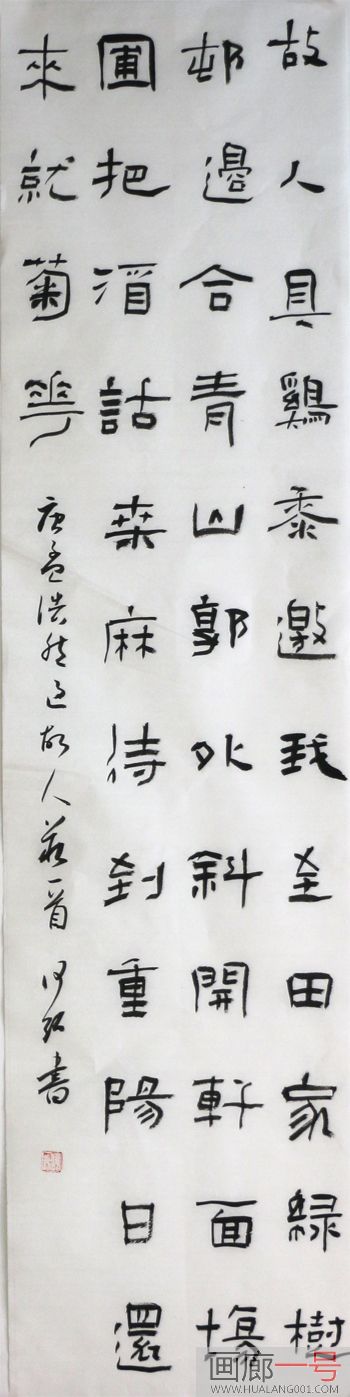 故人具鷄黍邀我至田家綠樹
邨邊合青山郭外斜開軒面場
圃把酒話桒麻待到重陽日還
來就菊華
唐孟浩然過故人莊一首
書
画廊一号
WWW.HUALANG001.COM